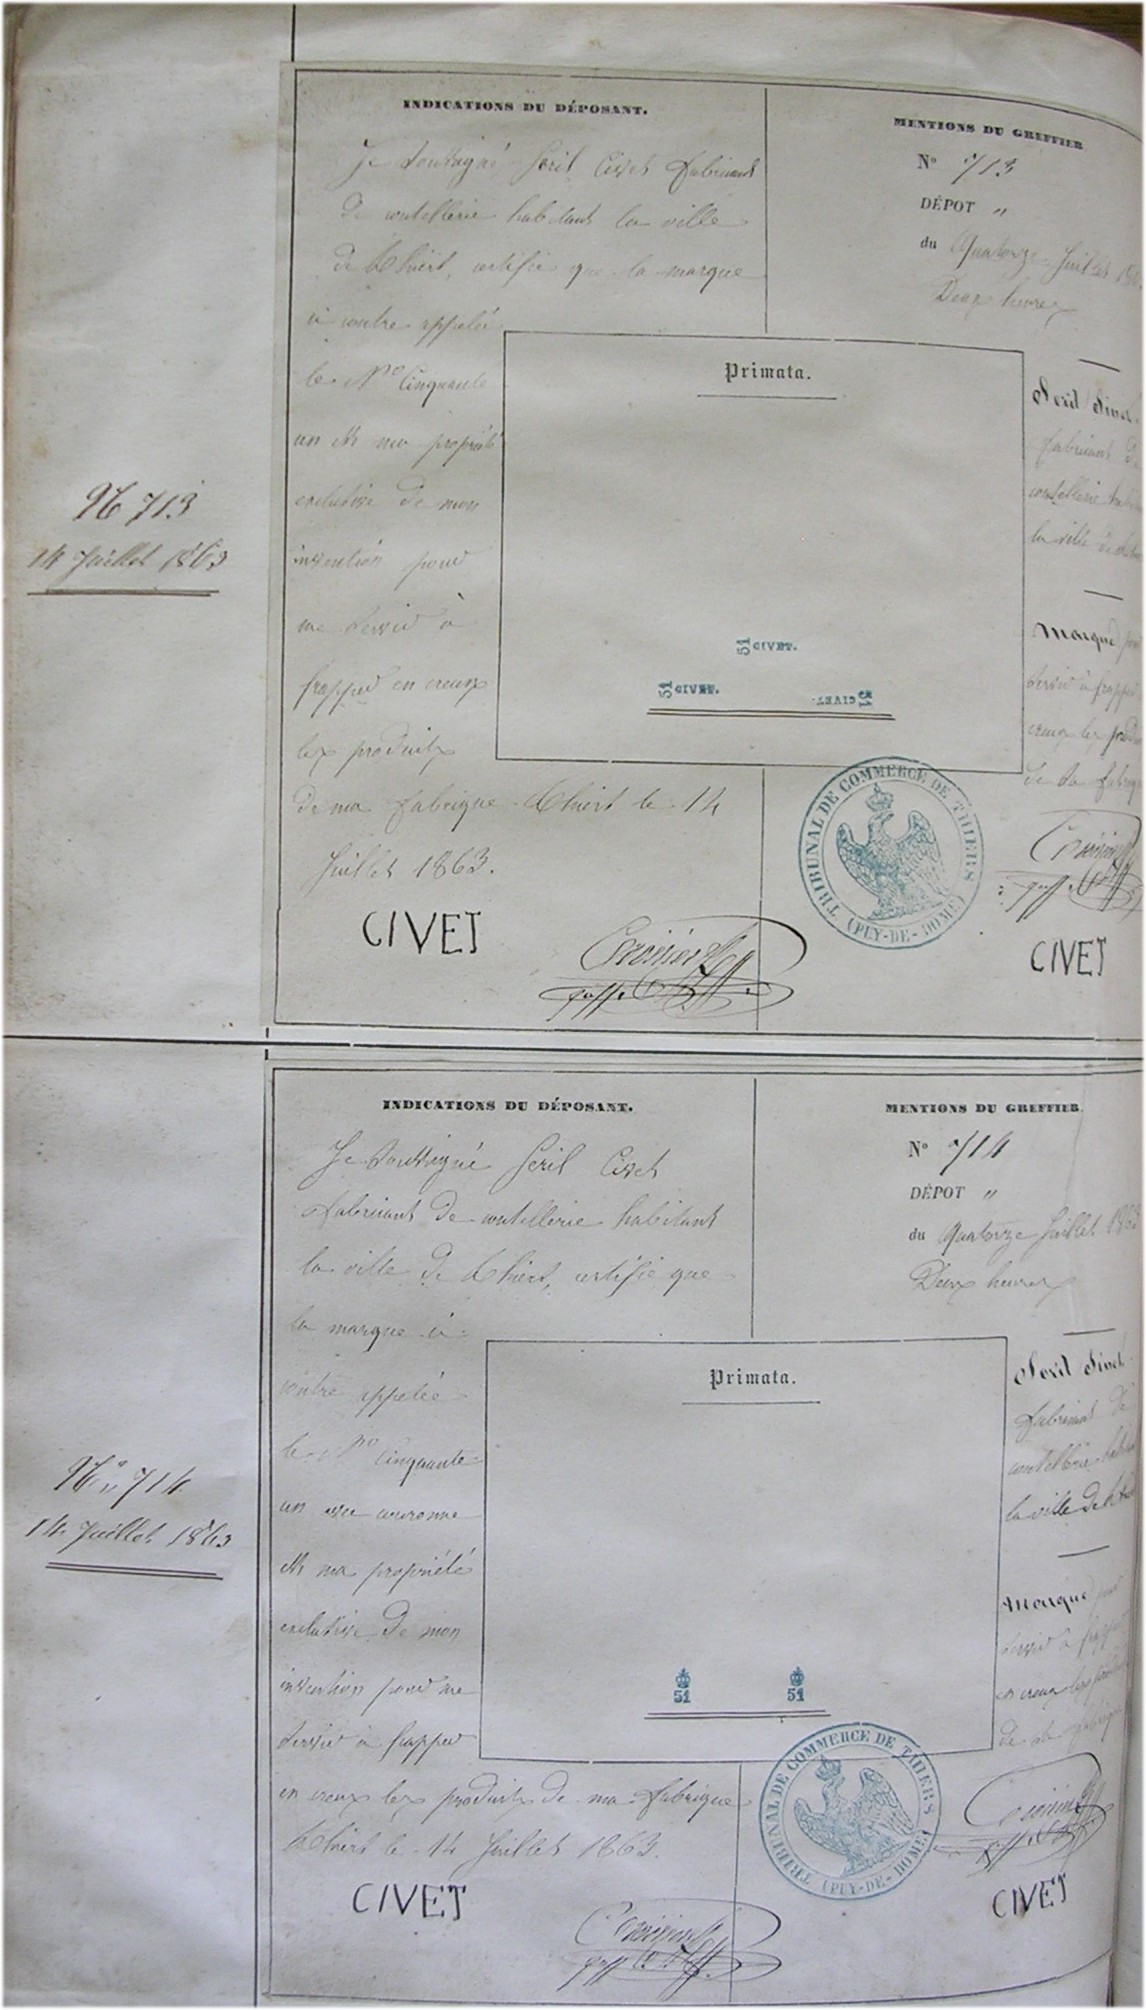 N° 713
14 Juillet 1863
INDICATIONS DU DÉPOSANT.
Je soussigné Civet fabricant
de coutellerie habitant la ville
de Thiers, certifie que la marque
ci contre appelée
le N° Cinquante
un est ma propriété
exclusive de mon
invention pour
me servir à
frapper en creux
les produits
de ma fabrique Thiers le 14
Juillet 1863.
CIVET
MENTIONS DU GREFFIER
N° 713
DÉPOT "
du Quatorze Juillet
Deux heures
Primata.
51 CIVET.
51 CIVET.
51 CIVET.
fabricant de
coutellerie
la ville de
Marque
servir à frapper
creux les
de sa
TRIBUNAL DE COMMERCE DE THIERS
(PUY-DE-DOME)
CIVET
N° 714
14 Juillet 1863
INDICATIONS DU DÉPOSANT.
Je soussigné Civet
fabricant de coutellerie habitant
la ville de Thiers, certifie que
la marque ci
contre appelée
le N° cinquante
un couronne
est ma propriété
exclusive de mon
invention pour me
servir à frapper
en creux les produits de ma fabrique
Thiers le 14 Juillet 1863.
CIVET
MENTIONS DU GREFFIER.
N° 714
DÉPOT "
du Quatorze Juillet 1863
Deux heures
Primata.
51 51
fabricant de
coutellerie
la ville de
Marque
servir à
en creux les
de sa
TRIBUNAL DE COMMERCE DE THIERS
(PUY-DE-DOME)
CIVET